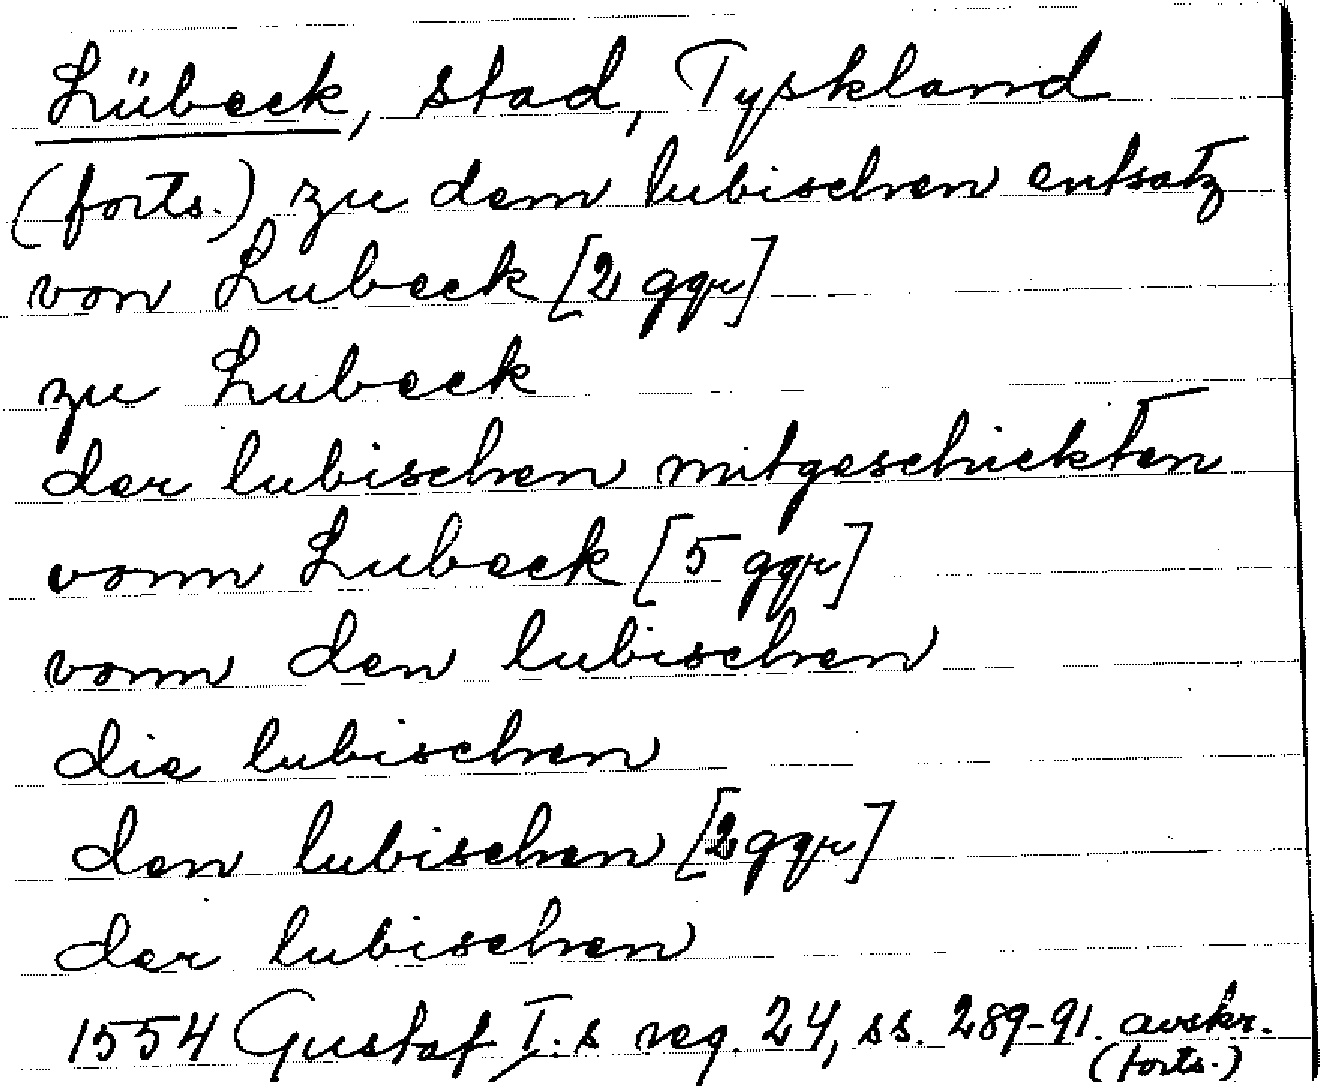 Lübeck, stad, Tyskland
(forts.) zu dem lubischen entsatz
von Lubeck [2 ggr]
zu Lubeck
der lubischen mitgeschickten
vonn Lubeck [5 ggr]
vonn den lubischen
die lubischen
den lubischen [2 ggr]
der lubischen
1554 Gustaf I:s reg. 24, ss. 289-91. avskr.
(forts.)